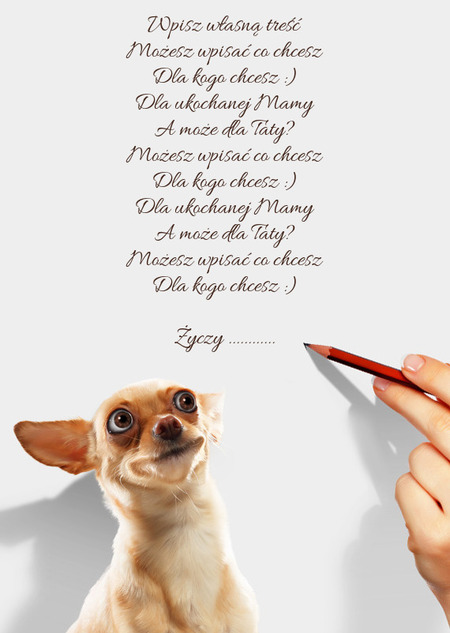 Wpisz własną treść
Możesz wpisać co chcesz
Dla kogo chcesz :)
Dla ukochanej Mamy
A może dla Taty?
Możesz wpisać co chcesz
Dla kogo chcesz :)
Dla ukochanej Mamy
A może dla Taty?
Możesz wpisać co chcesz
Dla kogo chcesz :)
Życzy ............